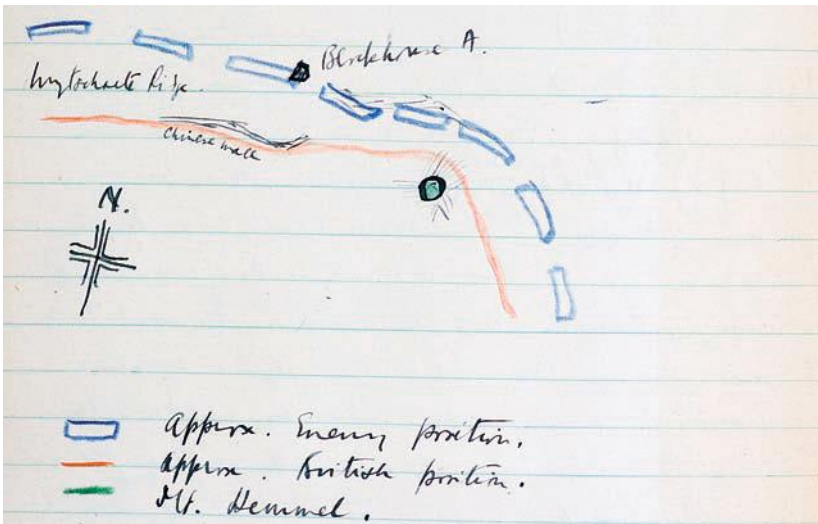 Blockhouse A.
Wytschaete Ridge.
Chinese Wall
N.
Approx. Enemy position.
Approx. British position.
Mt. Kemmel.